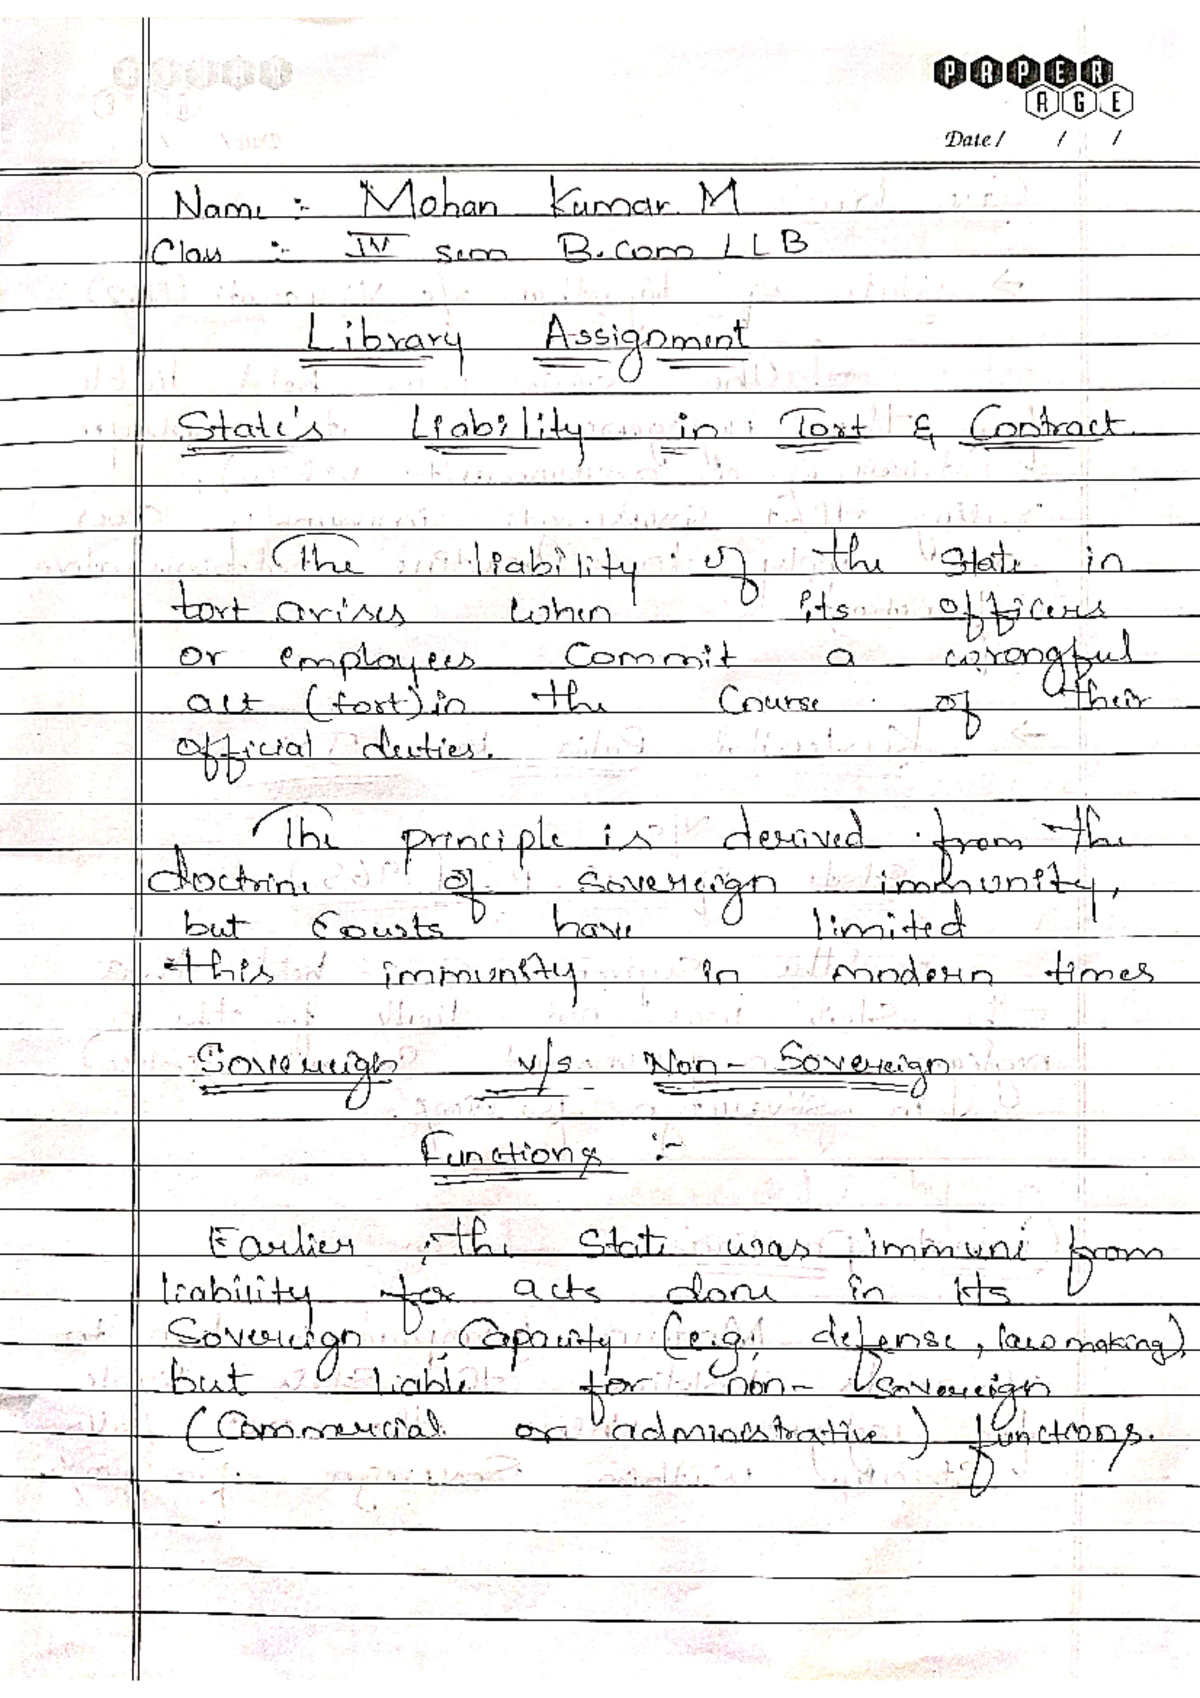 PAPER
AGE
Date / / /
Name :- Mohan Kumar. M
Class :- IV sem B.com LLB
Library Assignment
State's Liability in Tort & Contract
The liability of the State in
tort arises when its officers
or employees commit a wrongful
act (tort) in the course of their
official duties.
The principle is derived from the
doctrine of sovereign immunity,
but courts have limited
this immunity in modern times
Sovereign v/s Non-Sovereign
Functions :-
Earlier, the State was immune from
liability for acts done in its
Sovereign Capacity (e.g., defense, law making),
but liable for non-sovereign
(Commercial or administrative) functions.